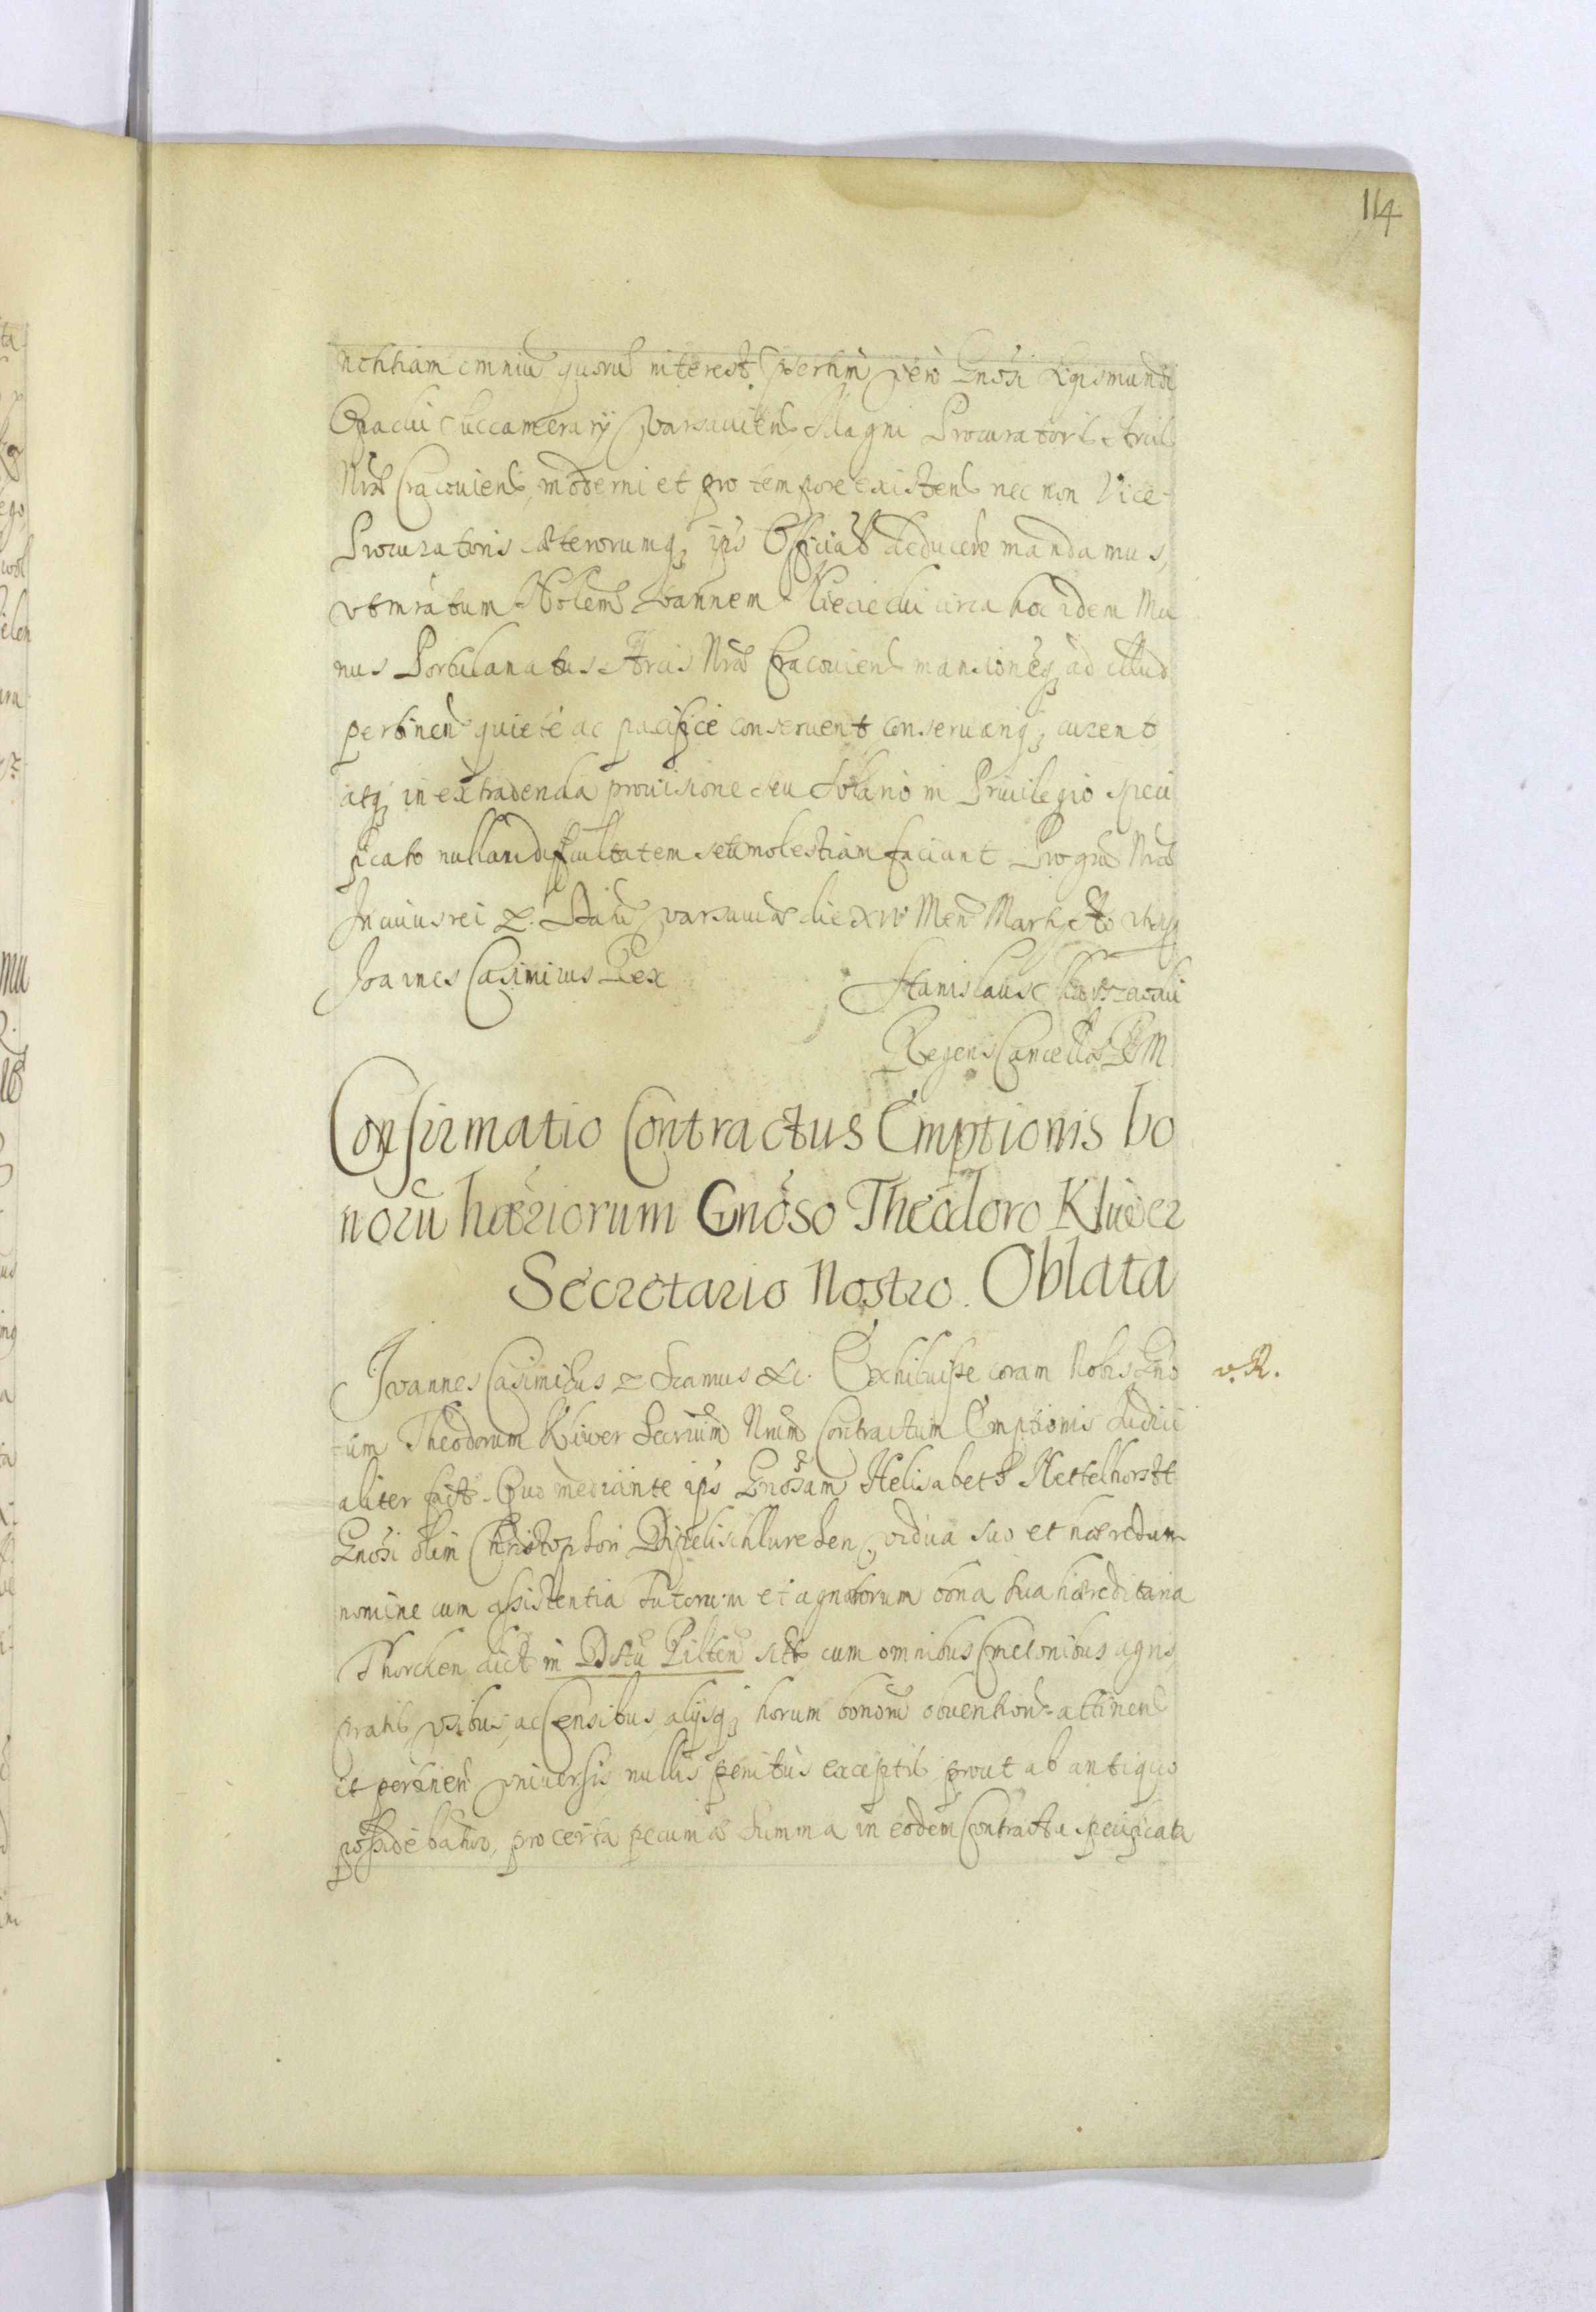 114
notitiam omniũ quorũ interest, p̃sertim verò Gnõsi Sigismundi
Opacki Succamerarij Varsauien̄ Magni Procuratoris Arcis
Nrã Cracouien̄ moderni et pro tempore existen̄ nec non Vice-
Procuratoris cæterorumq; ips Officiał deducere mandamus,
vt mratum Nobilem Ioannem circa hoc idem Mu
nus Portulanatus Arcis Nrã Cracouien̄ mansionẽq; ad illud
pertinen̄ quietè ac pacificè conseruent conseruariq; curent
atq; in extradenda prouisione seu Solario in Priuilegio speci
ficato nullam difficultatem seu molestiam faciant Pro grã Nrã
In cuius rei &. Datũ Varsauiæ die XIV Men̄ Martij Ao vtsup
Joannes Casimirus Rex Stanislaus
Regens Cancellæ R M
Confirmatio Contractus Emptionis bo
norũ hæriorum Gnõso Theodoro Kliwer
Secretario Nostro. Oblata
Joannes Casimirus & Scamus &c. Exhibuisse coram Nobis Gnõ v. R.
sum Theodorum Kliwer Secrium Nrum Contractum Emptionis Iudici
aliter fact. Quo mediante ips Gnõsam Helisabeth Nettelhorstt
Gnõsi olim Christophori vidua suo et hæredum
nomine cum assistentia tutorum et agnatorum bona sua hæreditaria
Thorcken dict in Dstũ Pilten̄ sitt, cum omnibus Cmetonibus, agris,
pratis, vsibus, ac Censibus, alijsq; horum bonorũ obuention̄ attinen̄
et pertinen̄ vniuersis, nullis penitùs exceptis, prout ab antiquo
possidebatur, pro certa pecuniæ summa in eodem Contractu specificata